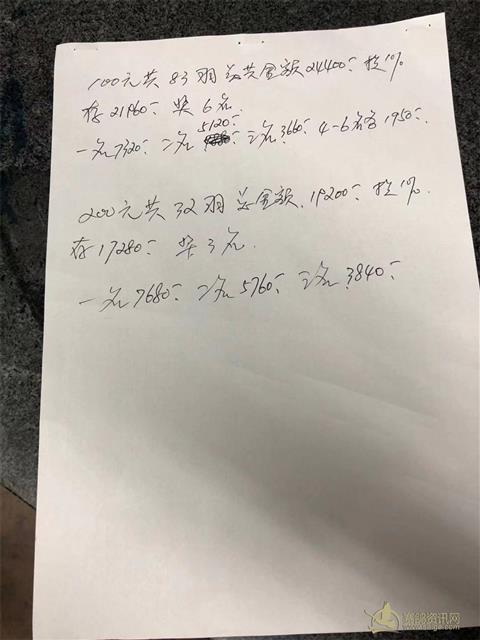 100元共83羽总共金额24400- 扣10%
存21960- 奖6名
一名7320- 二名5120- 三名3660- 4-6名各1950-
200元共32羽总金额.19200- 扣10%.
存17280- 奖3名.
一名7680- 二名5760- 三名3840-
赛鸽资讯网